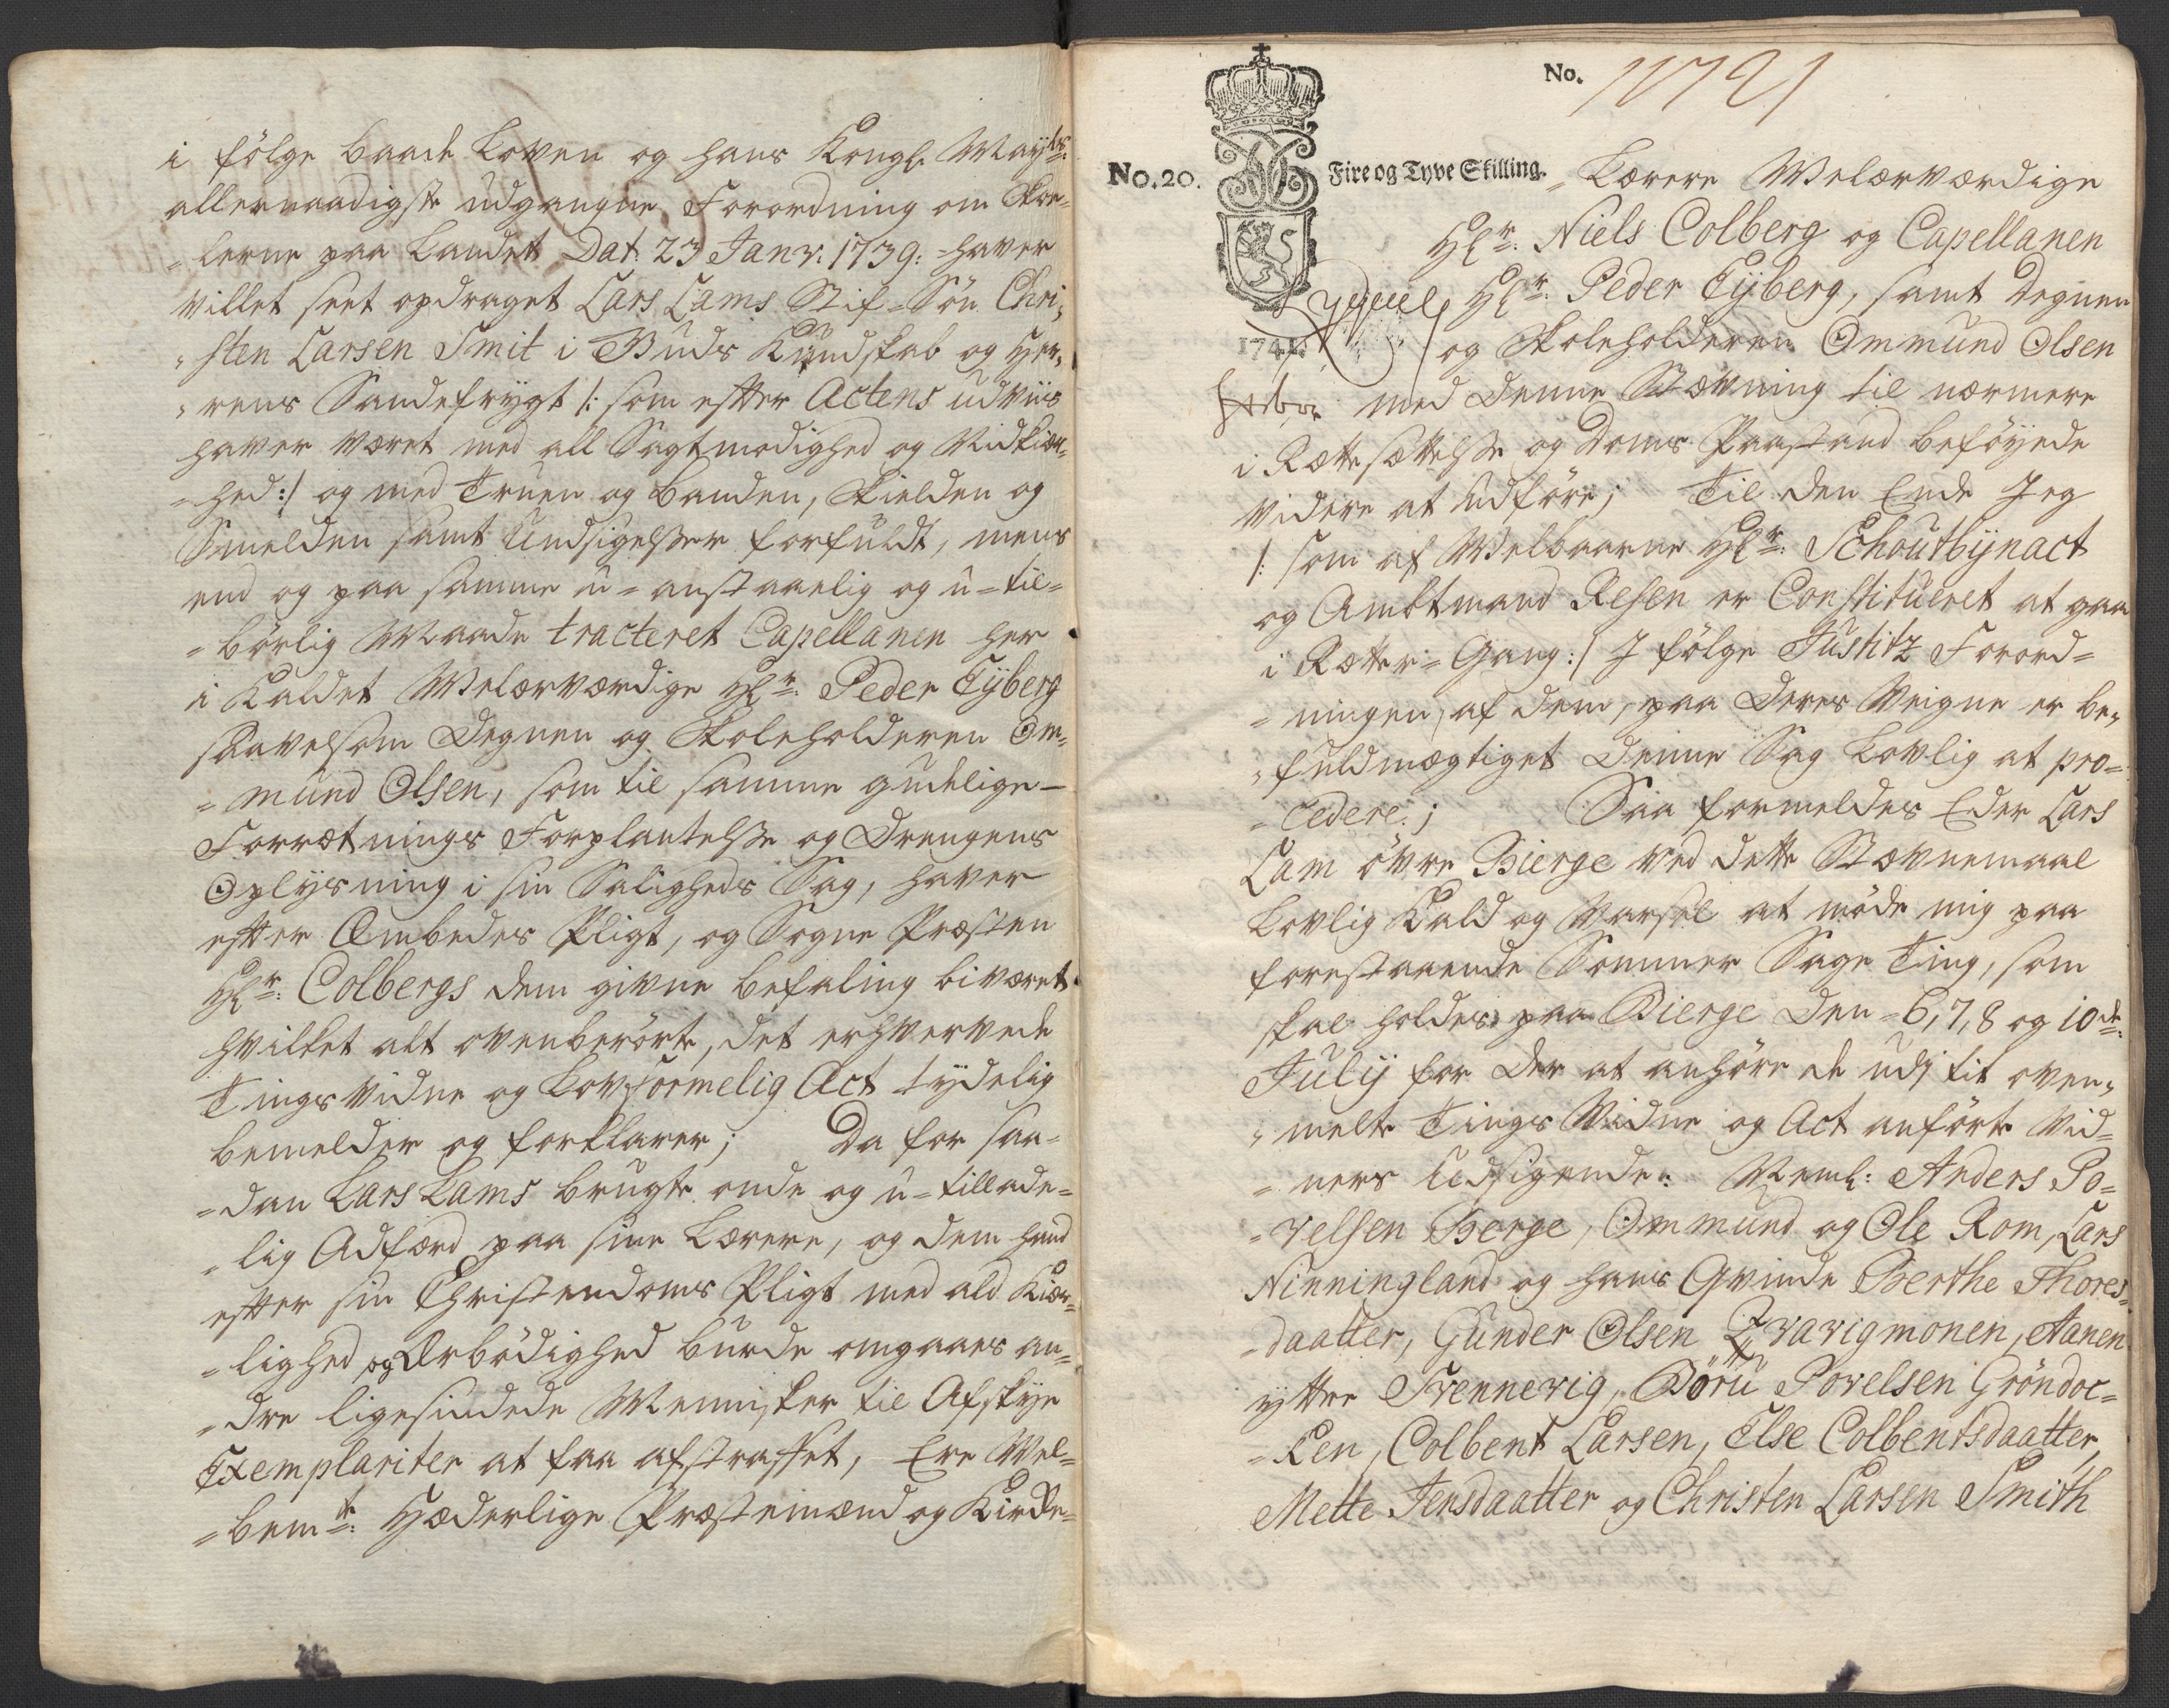 i følge baade Loven og hans Kongl. Mayts:
allernaadigste udgangne Forordning om Skoe-
=lerne paa Landet Dat. 23 Janv: 1739: haver
villet seet opdraget Lars Lams Stif-Søn Chri-
=sten Larsen Smit i Guds Kundskab og Her-
=rens Sandefrygt /: som efter Actens udviis
haver været med all Sagtmodighed og Midkier-
=hed :/ og med Truen og banden, skielden og
Smelden samt Undsigelsser forfuldt, mens
end og paa samme u-anstaaelig og u-til-
=børlig Maade tracteret Capellanen her
i Kaldet Welærværdige Hlr: Peder Eyberg
saavelsom Degnen og Skoleholderen Om-
=mund Olsen, som til samme gudelige
Forrætnings Forplantelsse og Drengens
Oplysning i sin Saligheds Sag, haver
efter Embedes Pligt, og Sogne Præsten
Hlr: Colbergs dem givne befaling biværet
hvilket alt ovenberørte, det erhvervede
Tingsvidne og Lovformelig Act tydelig
bemelder og forklarer; Da for saa-
=dan Lars Lams brugte onde og u-tillade-
=lig Adfærd paa sine Lærere, og dem hand
efter sin Christendoms Pligt med ald Kier-
=lighed og Ærbødighed burde omgaaes an-
=dre ligesindede Mennisker til Afskye
Exemplariter at faa afstraffet, Ere Wel-
=bemte: Hæderlige Præstemænd og Kirke-
No. 11721
No. 20. Fire og Tyve Skilling.
1741.
=Lærere Welærværdige
Hlr: Niels Colberg og Capellanen
Hlr: Peder Eyberg, samt Degnen
og Skoleholderen Ommund Olsen
med denne Stævning til nærmere
i Rættesættelsse og Doms Paastand beføyede
videre at udføre; Til den Ende Jeg
/: som af Welbaarne Hlr: Schoutbynact
og Ambtmand Resen er Constitueret at gaa
i Rætter-Gang :/ I følge Justitz Forord-
=ningen, af dem, paa deres Veigne er be-
=fuldmægtiget denne Sag Lovlig at pro-
=cedere; Saa formeldes Eder Lars
Lam øvre Bierge ved dette Stævnemaal
Lovlig Kald og Varsel at møde mig paa
forestaaende Sommer Sage Ting, som
skal holdes paa Bierge den 6, 7, 8 og 10de:
July for der at anhøre de udj tit oven-
=melte Tings Vidne og Act anførte Vid-
=ners Udsigende: Neml: Anders Po-
=velsen Berge, Ommund og Ole Rom, Lars
Ninningland og hans Qvinde Berthe Thores-
=daatter, Gunder Olsen Qvavigmonen, Aanen
yttre Svennevig, Børu Povelsen Grøndoc-
=ken, Colbent Larsen, Else Colbentsdaatter,
Mette Jensdaatter og Christen Larsen Smith